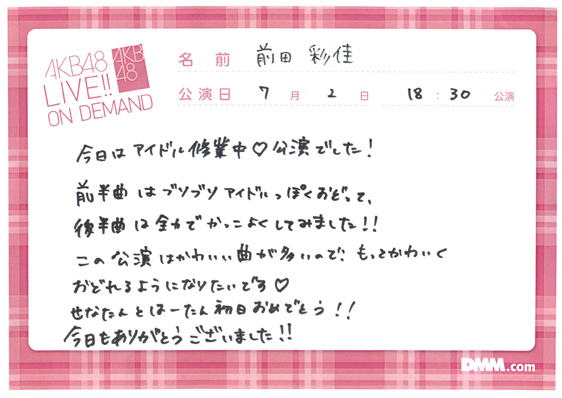 AKB48
LIVE!!
ON DEMAND
AKB
48
名前 前田 彩佳
公演日 7月2日 18:30 公演
今日はアイドル修業中♡公演でした!
前半曲はブリブリアイドルっぽくおどって、
後半曲は全力でかっこよくしてみました!!
この公演はかわいい曲が多いので、もっとかわいく
おどれるようになりたいです♡
せなたんとはーたん初日おめでとう!!
今日もありがとうございました!!
DMM.com